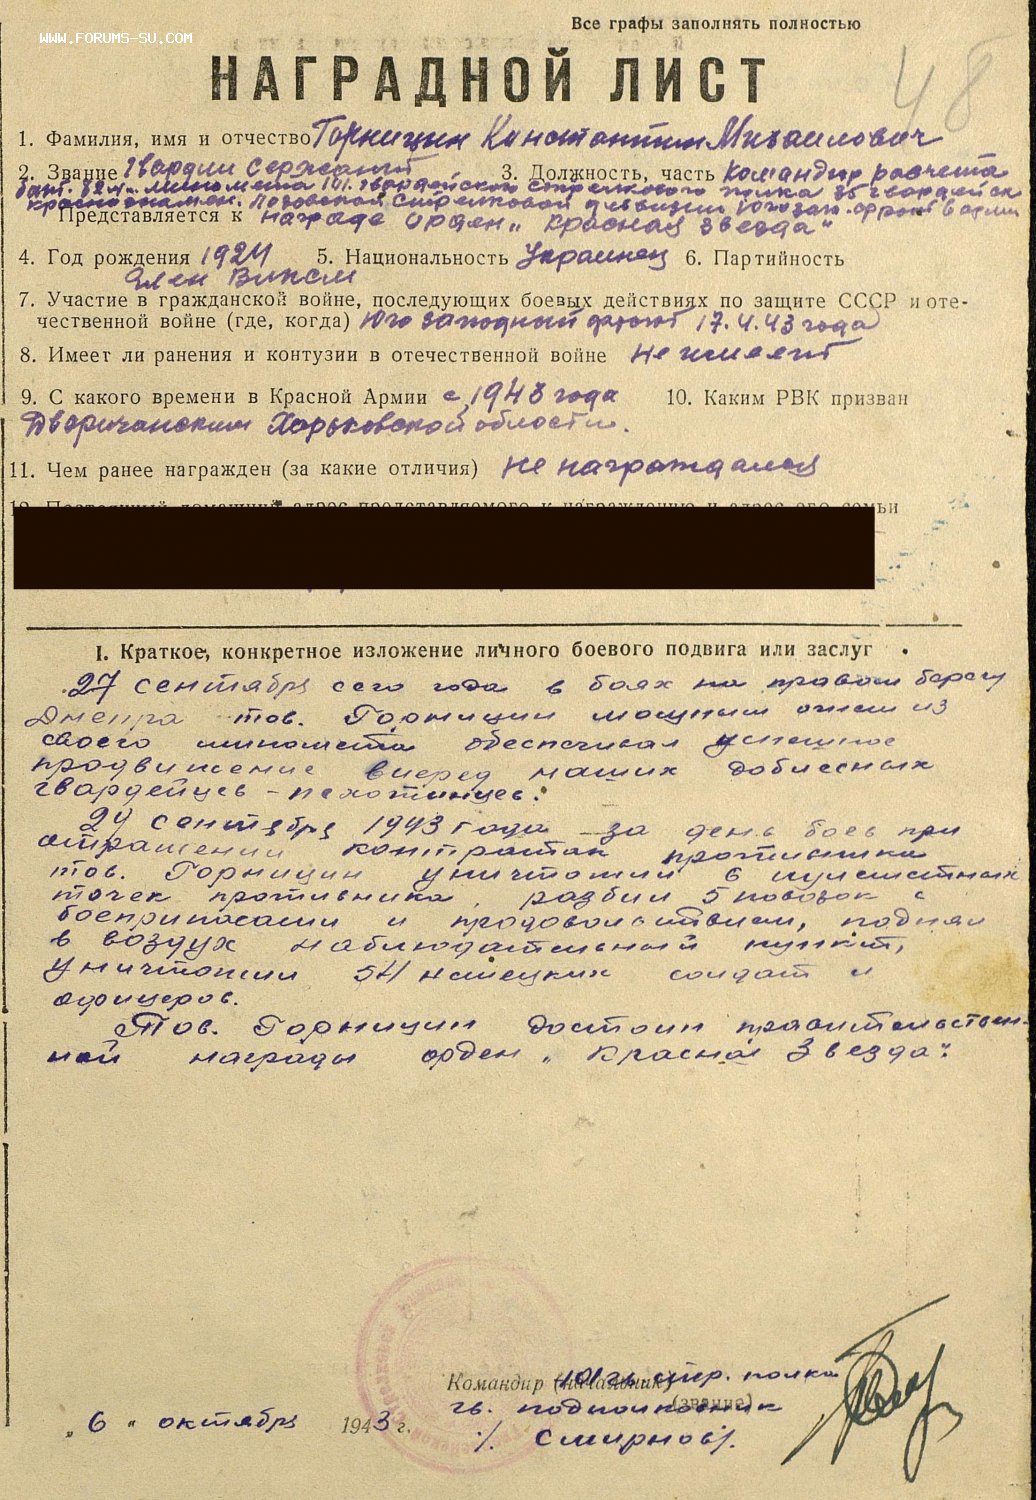 Все графы заполнять полностью
WWW.FORUMS-SU.COM
48
НАГРАДНОЙ ЛИСТ
1. Фамилия, имя и отчество Горницин Константин Михаилович
2. Звание Гвардии Сержант 3. Должность, часть Командир расчета
бат. 82 м.м. миномета 101 гвардейского стрелкового полка 35 гвардейск
краснознамен. Лозовской стрелковой дивизии Югозап. фронт
Представляется к награде орден „Красная Звезда“
4. Год рождения 1924 5. Национальность Украинец 6. Партийность
Член ВЛКСМ
7. Участие в гражданской войне, последующих боевых действиях по защите СССР и оте-
чественной войне (где, когда) Юго западный фронт 17.4.43 года
8. Имеет ли ранения и контузии в отечественной войне Не имеет
9. С какого времени в Красной Армии с 1943 года 10. Каким РВК призван
Дворичанским Харьковской области.
11. Чем ранее награжден (за какие отличия) Не награждался
12. Постоянный домашний адрес представляемого к награждению и адрес его семьи
I. Краткое, конкретное изложение личного боевого подвига или заслуг
27 сентября сего года в боях на правом берегу
Днепра тов. Горницин мощным огнем из
своего миномета обеспечивал успешное
продвижение вперед наших доблесных
гвардейцев-пехотинцев.
29 сентября 1943 года за день боев при
отражении контратак противника
тов. Горницин уничтожил 6 пулеметных
точек противника, разбил 5 повозок с
боеприпасами и продовольствием, поднял
в воздух наблюдательный пункт,
уничтожил 54 немецких солдат и
офицеров.
Тов. Горницин достоин правительствен-
ной награды орден „Красная Звезда“.
Командир (начальник) 101 гв. стр. полка
гв. подполковник (звание)
„6„ октября 1943 г.
/Смирнов/.